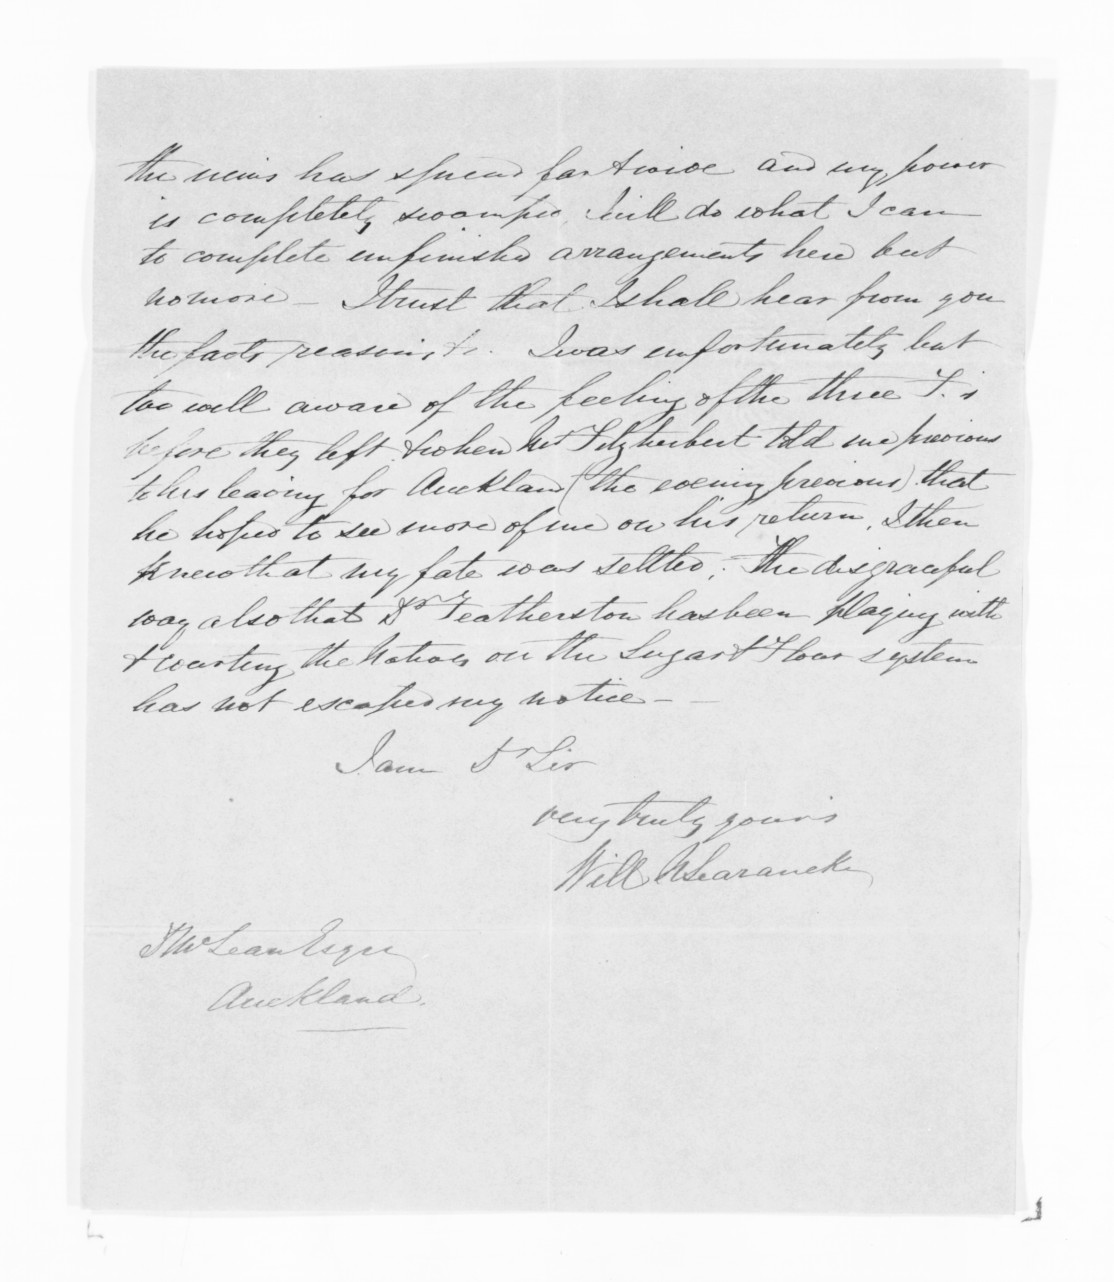 the news has spread far & wide and my power
is completely swamped. I will do what I can
to complete unfinished arrangements here but
no more — I trust that I shall hear from you
the facts, reasons, &c. I was unfortunately but
too well aware of the feeling of the three F.'s
before they left & when Mr Fitzherbert told me previous
to his leaving for Auckland (the evening previous) that
he hoped to see more of me on his return, I then
knew that my fate was settled; The disgraceful
way also that Dr Featherston has been playing with
& courting the Natives on the Sugar & Flour system
has not escaped my notice —
I am Dr Sir
very truly yours
Will N Searancke
D McLean Esqre
Auckland.